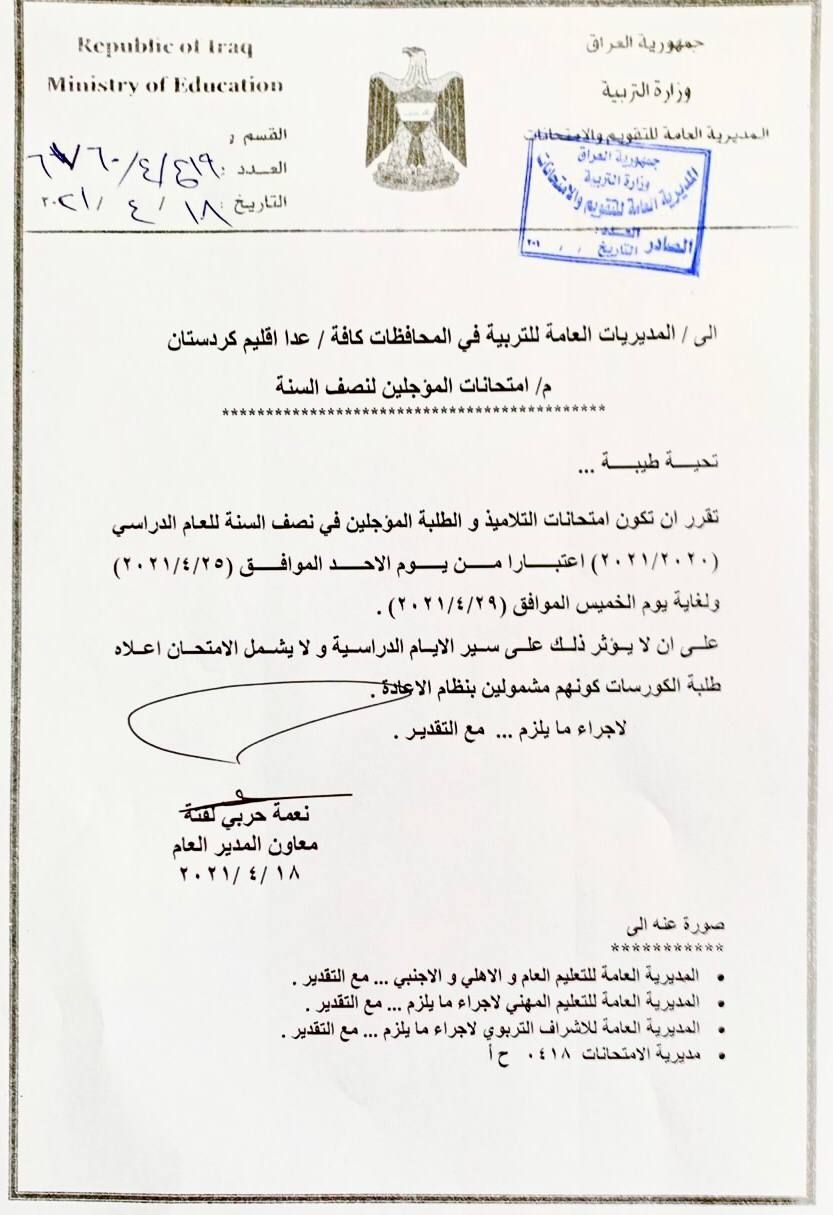 Republic of Iraq
Ministry of Education
جمهورية العراق
وزارة التربية
المديرية العامة للتقويم والامتحانات
القسم :
العدد :
التاريخ : ١٨ / ٤ / ٢٠٢١
جمهورية العراق
وزارة التربية
المديرية العامة للتقويم والامتحانات
العدد:
الصادر التاريخ / / ٢٠١
الى / المديريات العامة للتربية في المحافظات كافة / عدا اقليم كردستان
م/ امتحانات المؤجلين لنصف السنة
********************************************
تحيـــة طيبـــة ...
تقرر ان تكون امتحانات التلاميذ و الطلبة المؤجلين في نصف السنة للعام الدراسي
(٢٠٢١/٢٠٢٠) اعتبـــارا مـــن يـــوم الاحـد الموافـــق (٢٠٢١/٤/٢٥)
ولغاية يوم الخميس الموافق (٢٠٢١/٤/٢٩) .
علـى ان لا يـؤثر ذلـك علـى سـير الايـام الدراسـية و لا يشـمل الامتحـان اعـلاه
طلبة الكورسات كونهم مشمولين بنظام الاعادة .
لاجراء ما يلزم ... مع التقدير .
نعمة حربي لفتة
معاون المدير العام
١٨ /٤ /٢٠٢١
صورة عنه الى
***********
• المديرية العامة للتعليم العام و الاهلي و الاجنبي ... مع التقدير .
• المديرية العامة للتعليم المهني لاجراء ما يلزم ... مع التقدير .
• المديرية العامة للاشراف التربوي لاجراء ما يلزم ... مع التقدير .
• مديرية الامتحانات ٠٤١٨ ح أ